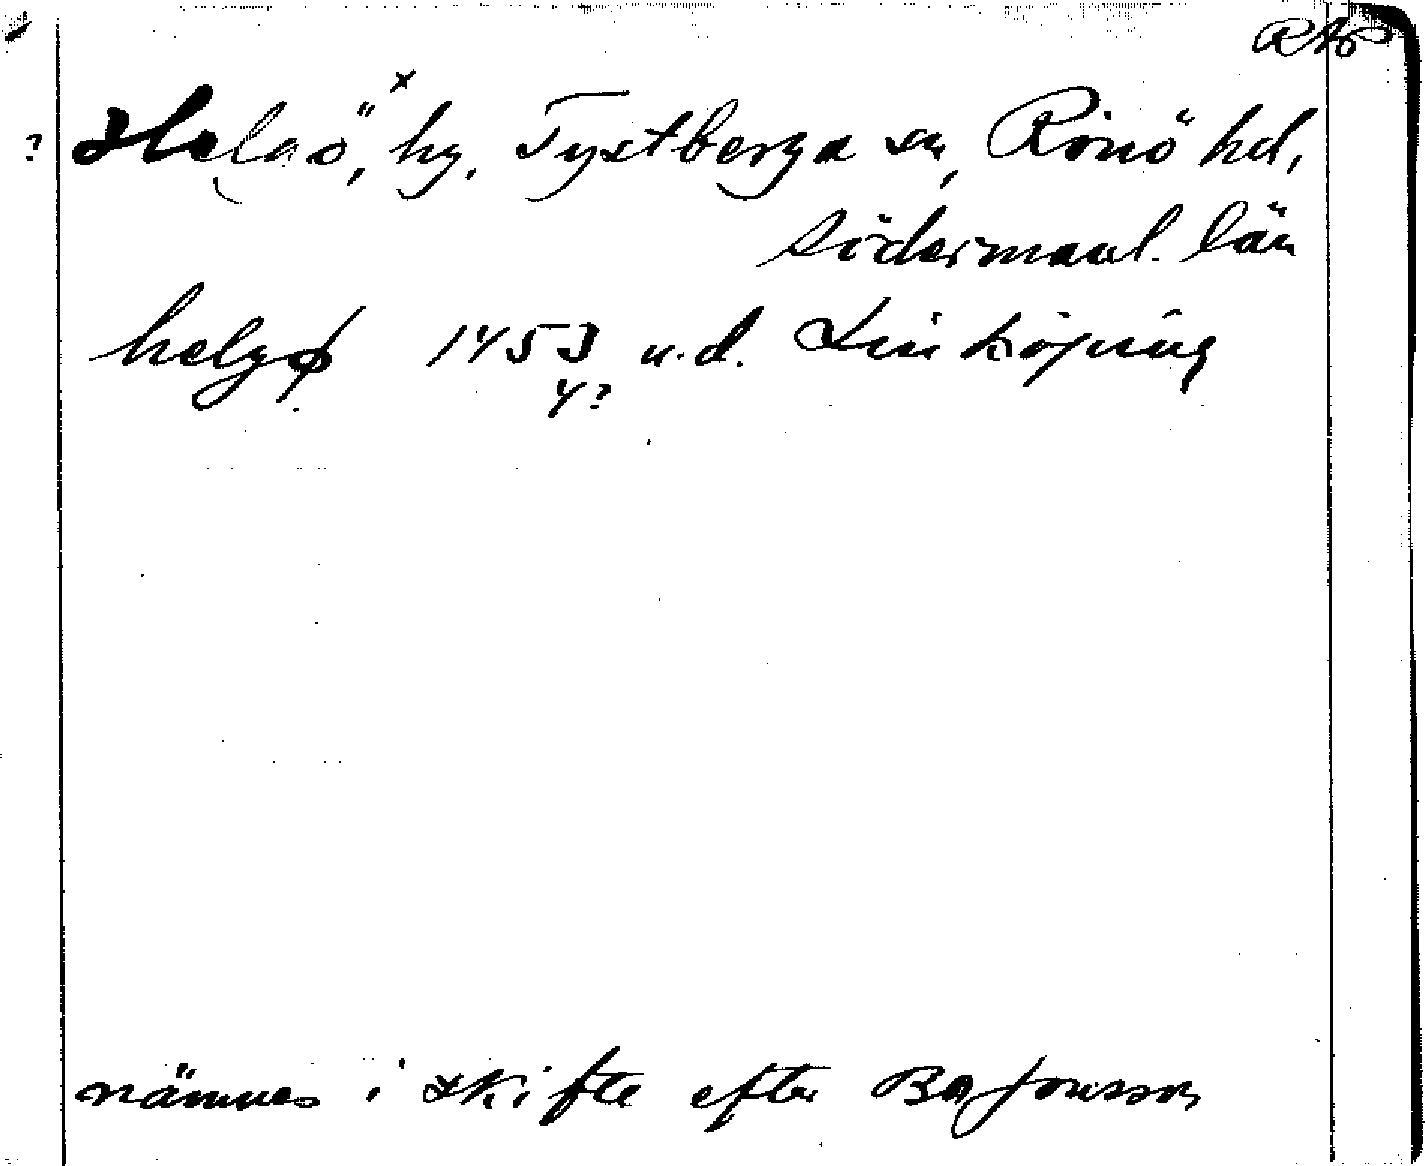 RAp
x
? Helgö, hg. Tystberga sn, Rönö hd,
Södermanl. län
helgø 1453 u.d. Linköping
4?
nämnes i skifte efter Bo Jonsson